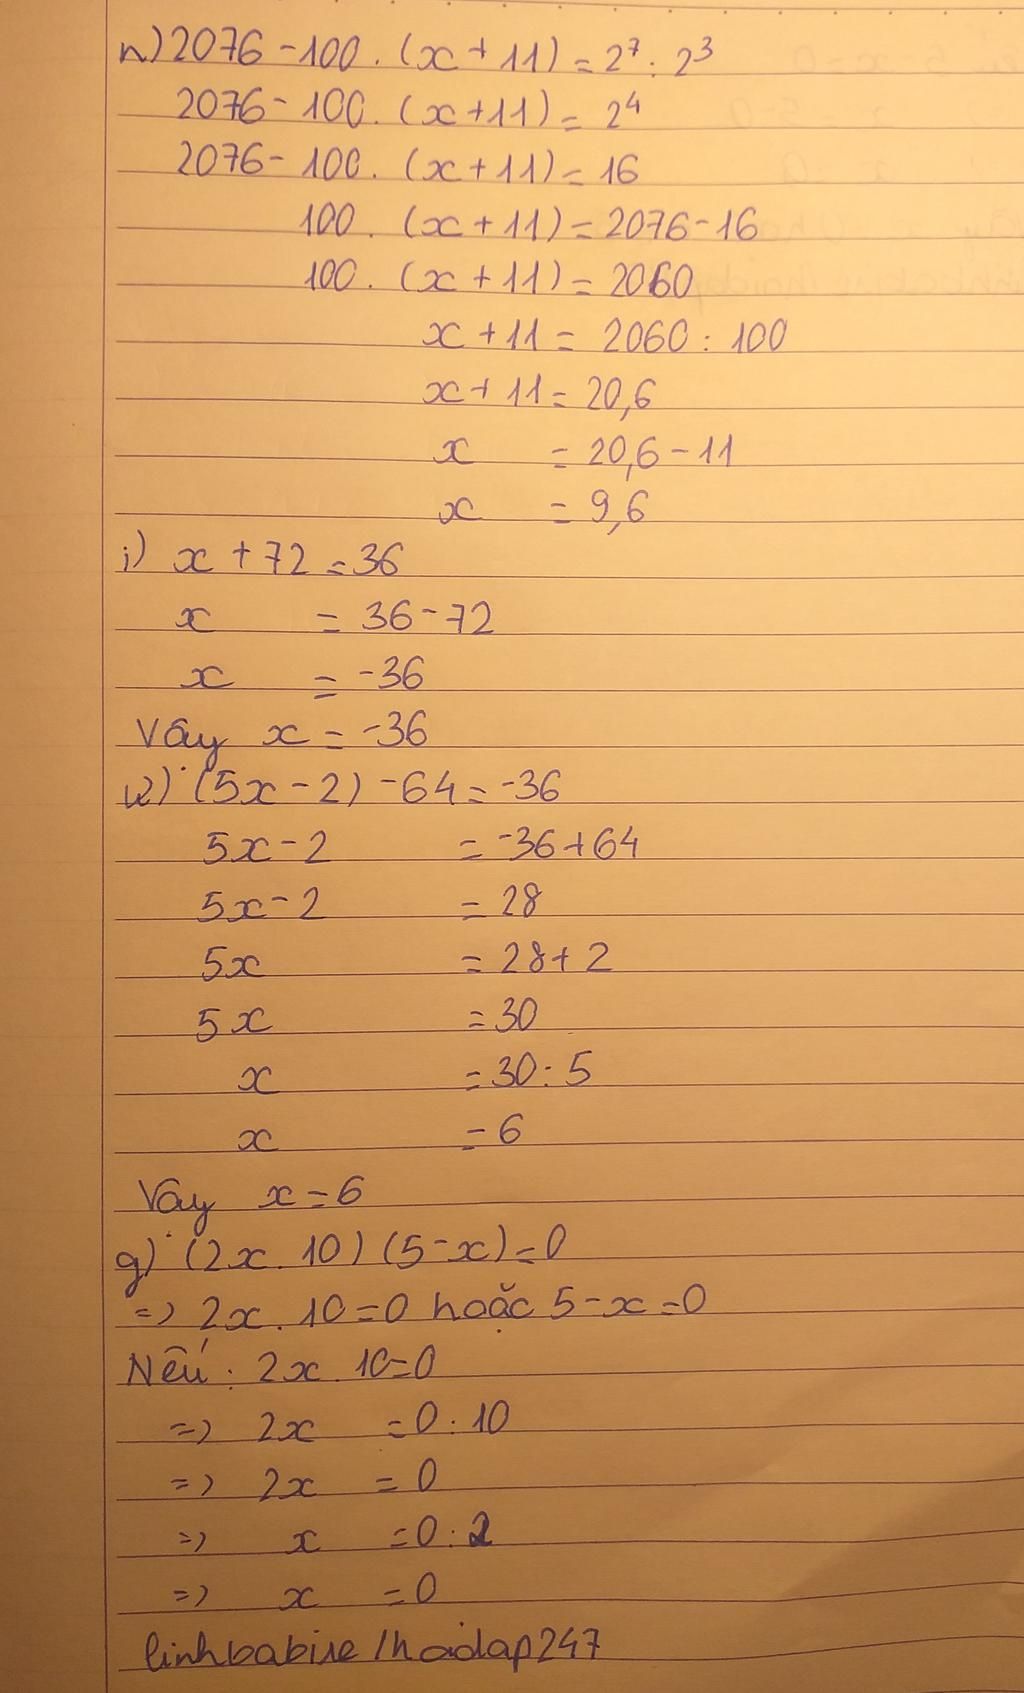 h) 2076 - 100 . (x + 11) = 2⁷ : 2³
2076 - 100 . (x + 11) = 2⁴
2076 - 100 . (x + 11) = 16
100 . (x + 11) = 2076 - 16
100 . (x + 11) = 2060
x + 11 = 2060 : 100
x + 11 = 20,6
x = 20,6 - 11
x = 9,6
i) x + 72 = 36
x = 36 - 72
x = -36
Vậy x = -36
k) (5x - 2) - 64 = -36
5x - 2 = -36 + 64
5x - 2 = 28
5x = 28 + 2
5x = 30
x = 30 : 5
x = 6
Vậy x = 6
g) (2x . 10) (5 - x) = 0
=> 2x . 10 = 0 hoặc 5 - x = 0
Nếu : 2x . 10 = 0
=> 2x = 0 : 10
=> 2x = 0
=> x = 0 : 2
=> x = 0
/hoidap247